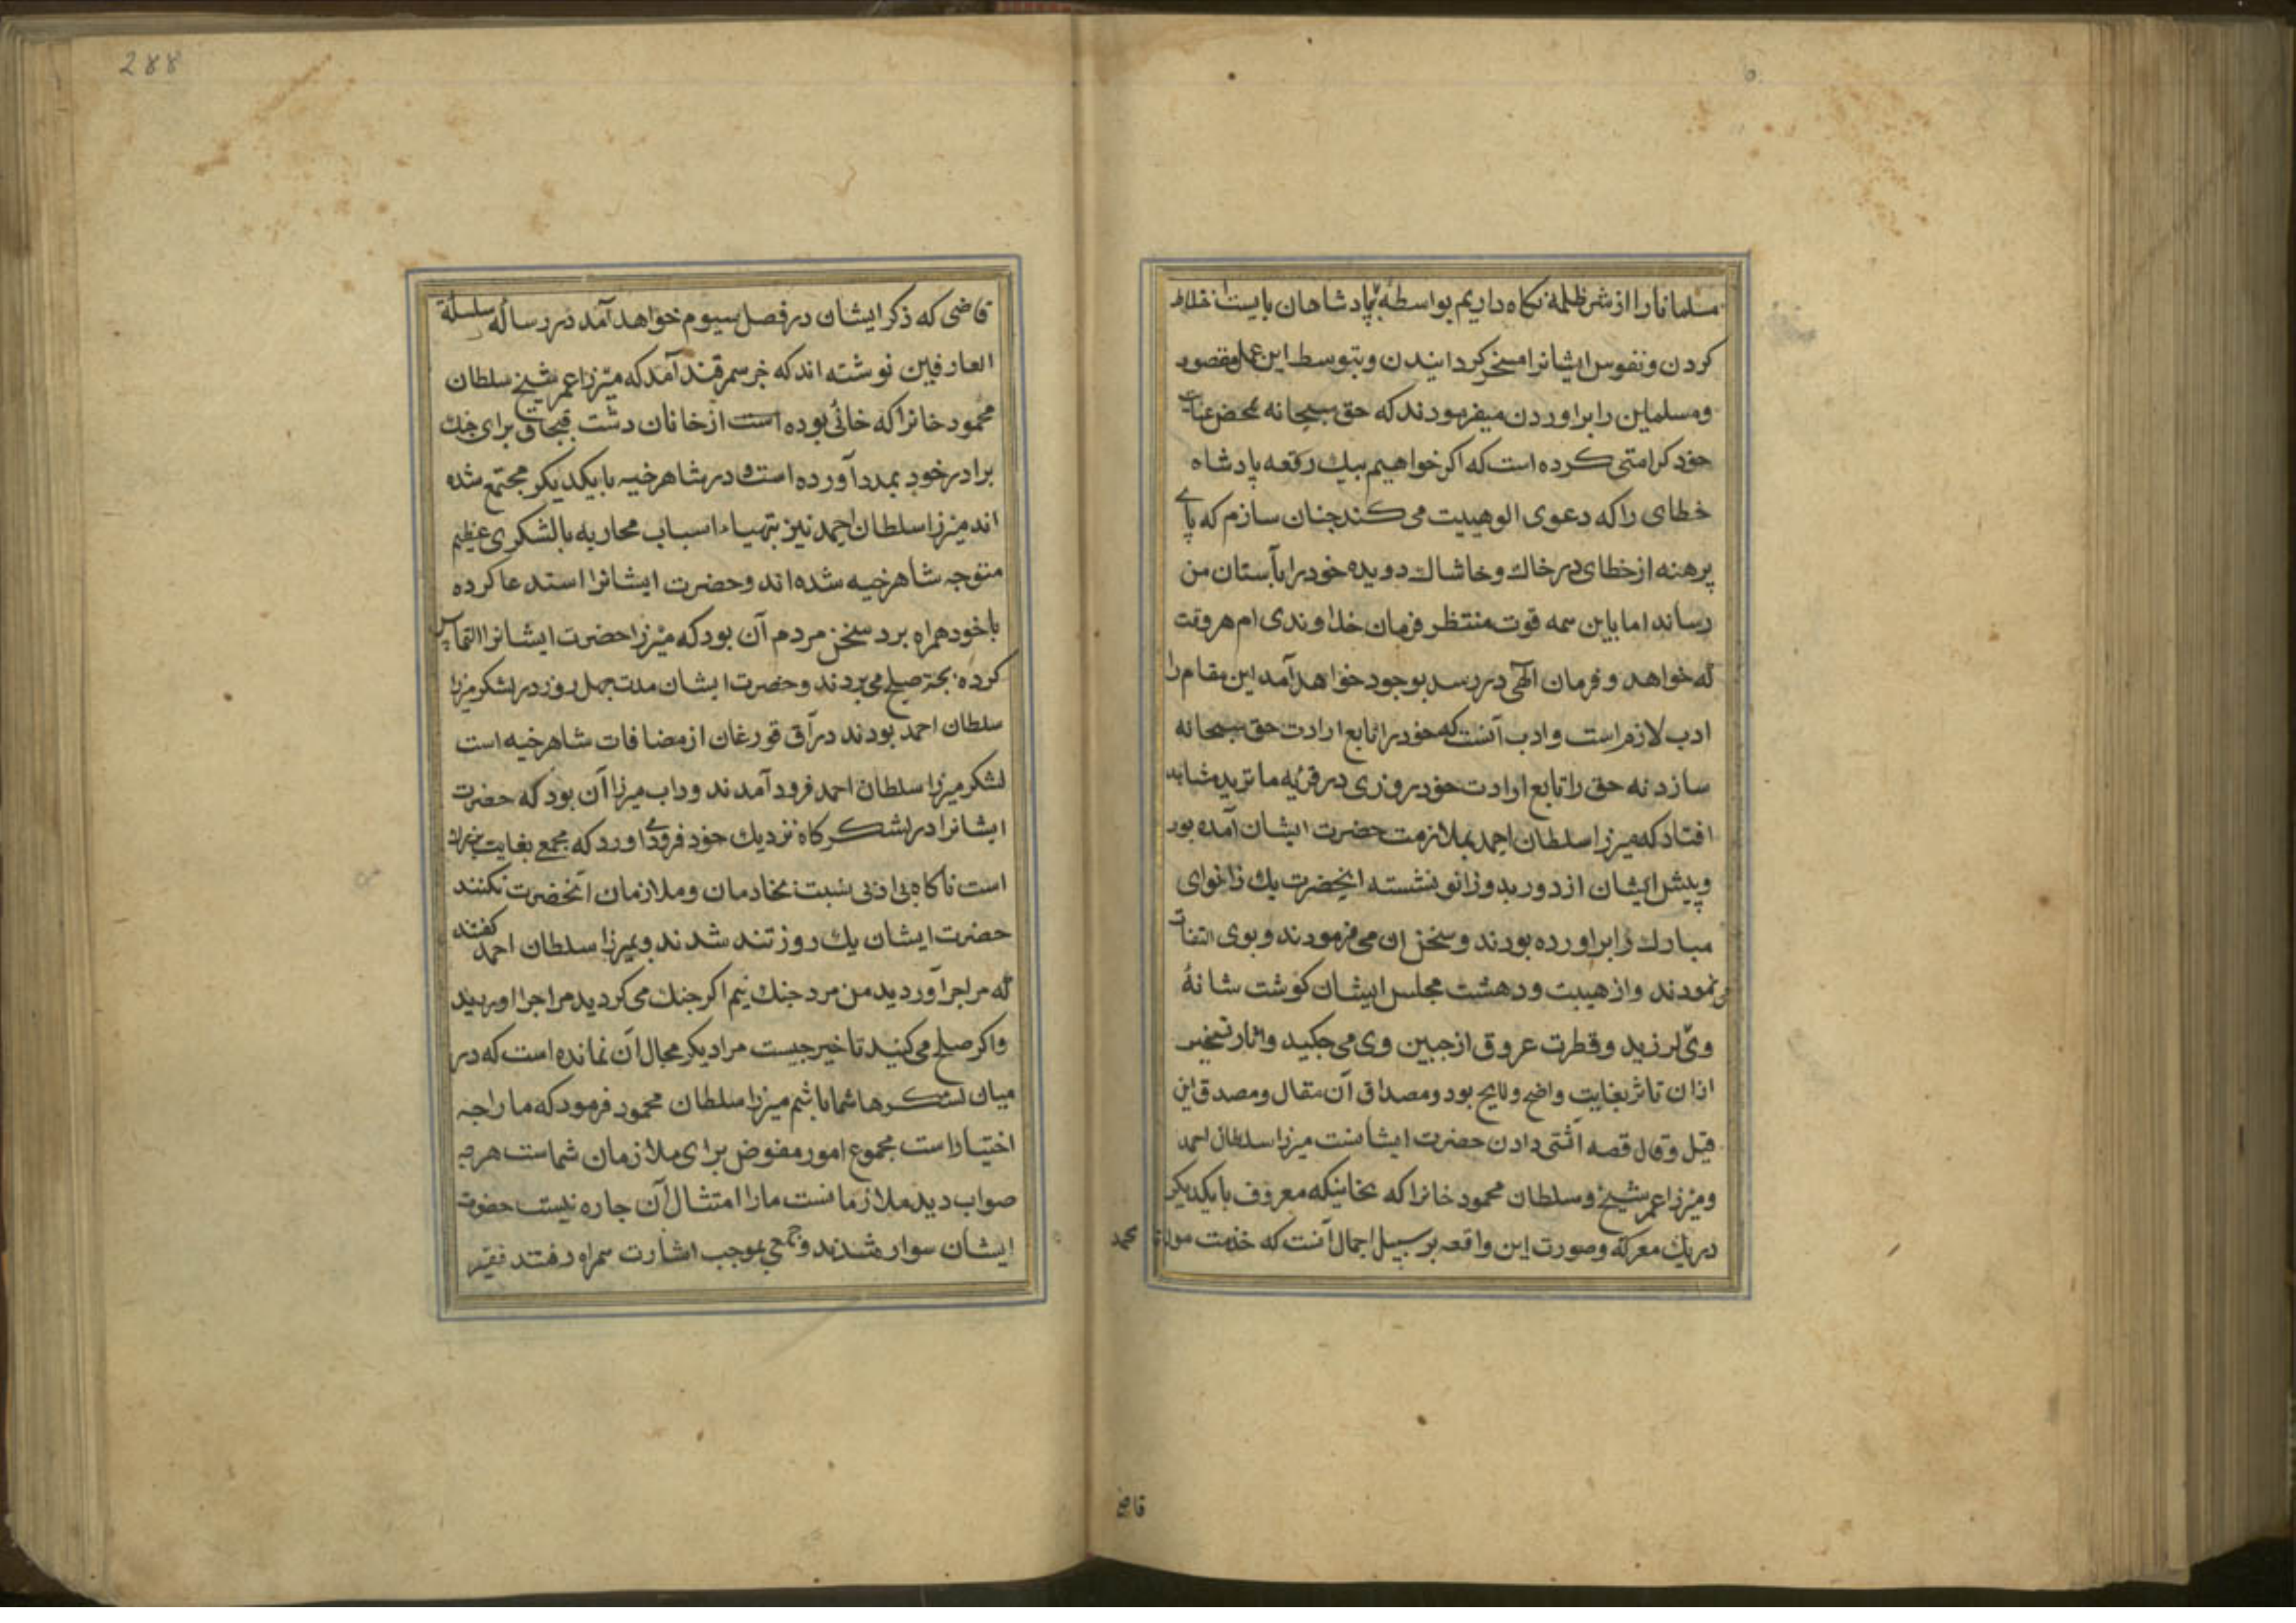 مسلمانانرا از شر ظلمه نگاه داریم بواسطه پادشاهان بایست اختلاط
کردن و نفوس ایشانرا مسخر کردانیدن و بتوسط این عمل مقصود
و مسلمین را براوردن میفرمودند که حق سبحانه محض عنایت
خود کرامتی کرده است که اکر خواهیم بیک رقعه پادشاه
خطای را که دعوی الوهیت می کند چنان سازم که پای
برهنه از خطای در خاک و خاشاک دویده خود را بآستان من
رساند اما باین همه قوت منتظر فرمان خداوندی ام هر وقت
که خواهد و فرمان الهی در رسد بوجود خواهد آمد این مقام را
ادب لازم است و ادب آنست که خود را تابع ارادت حق سبحانه
سازد نه حق را تابع ارادت خود روزی در قریه ماترید مشاهده
افتاد که میرزا سلطان احمد بملازمت حضرت ایشان آمده بود
و پیش ایشان از دور بدو زانو نشسته انحضرت یک زانوای
مبارک را براورده بودند و سخنان می فرمودند و بوی التفات
می نمودند و از هیبت و دهشت مجلس ایشان کوشت شانهٔ
وی لرزید و قطرت عروق از جبین وی می جکید و اثار تسخیر
ازان تاثر بغایت واضح و لایح بود و مصداق آن مقال و مصدق این
قیل و قال قصه آشتی دادن حضرت ایشانست میرزا سلطان احمد
و میرزا عمر شیخ و سلطان محمود خانرا که بخانیکه معروف بایکدیکر
در یک معرکه و صورت این واقعه بر سبیل اجمال آنست که خدمت مولانا محمد
قاضی
288
قاضی که ذکر ایشان در فصل سیوم خواهد آمد در رسالهٔ سلسلة
العارفین نوشته اند که خبر سمرقند آمد که میرزا عمر شیخ سلطان
محمود خانرا که خانی بوده است از خانان دشت قبجاق برای جنک
برادر خود بمدد آورده است و در شاهرخیه بایکدیکر مجتمع شده
اند میرزا سلطان احمد نیز بتهیاء اسباب محاربه بالشکری عظیم
متوجه شاهرخیه شده اند و حضرت ایشانرا استدعا کرده
با خود همراه برد سخن مردم آن بود که میرزا حضرت ایشانرا التماس
کرده بجهة صلح می بردند و حضرت ایشان مدت چهل روز در لشکر میرزا
سلطان احمد بودند در آق قورغان از مضافات شاهرخیه است
لشکر میرزا سلطان احمد فرود آمدند و داب میرزا آن بود که حضرت
ایشانرا در لشکرکاه نزدیک خود فرود اورد که مجمع بغایت
است ناکاه بی ادبی نسبت بخادمان و ملازمان آنحضرت نکنند
حضرت ایشان یک روز تند شدند و بمیرزا سلطان احمد کفتند
که مرا چرا آوردید من مرد جنک نیم اکر جنک می کردید مرا چرا اوردید
و اکر صلح می کنید تاخیر چیست مرا دیکر مجال آن نمانده است که در
میان لشکرها شما باشم میرزا سلطان محمود فرمود که ما را چه
اختیار است مجموع امور مفوض برای ملازمان شماست هر چه
صواب دید ملازمانست ما را امتثال آن چاره نیست حضرت
ایشان سوار شدند و جمعی بموجب اشارت همراه رفتند فقیر